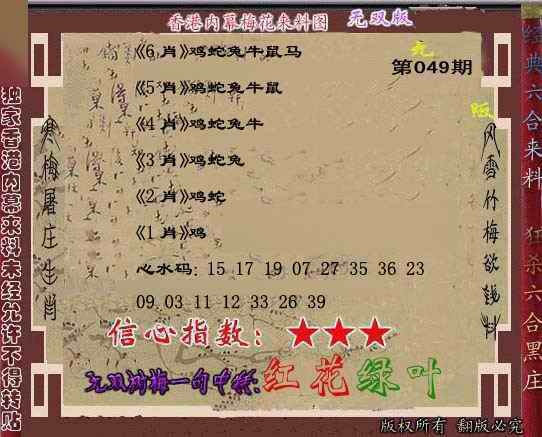 香港内幕梅花来料图 无双版
《6 肖》鸡蛇兔牛鼠马
无
第049期
《5 肖》鸡蛇兔牛鼠
版
《4 肖》鸡蛇兔牛
《3 肖》鸡蛇兔
《2 肖》鸡蛇
《1 肖》鸡
心水码: 15 17 19 07 27 35 36 23
09 03 11 12 33 26 39
信心指数: ★★★
红花绿叶
版权所有 翻版必究
独家香港内幕来料未经允许不得转贴
寒梅屠庄生肖
风雪竹梅欲钱料
经典六合来料 狂杀六合黑庄